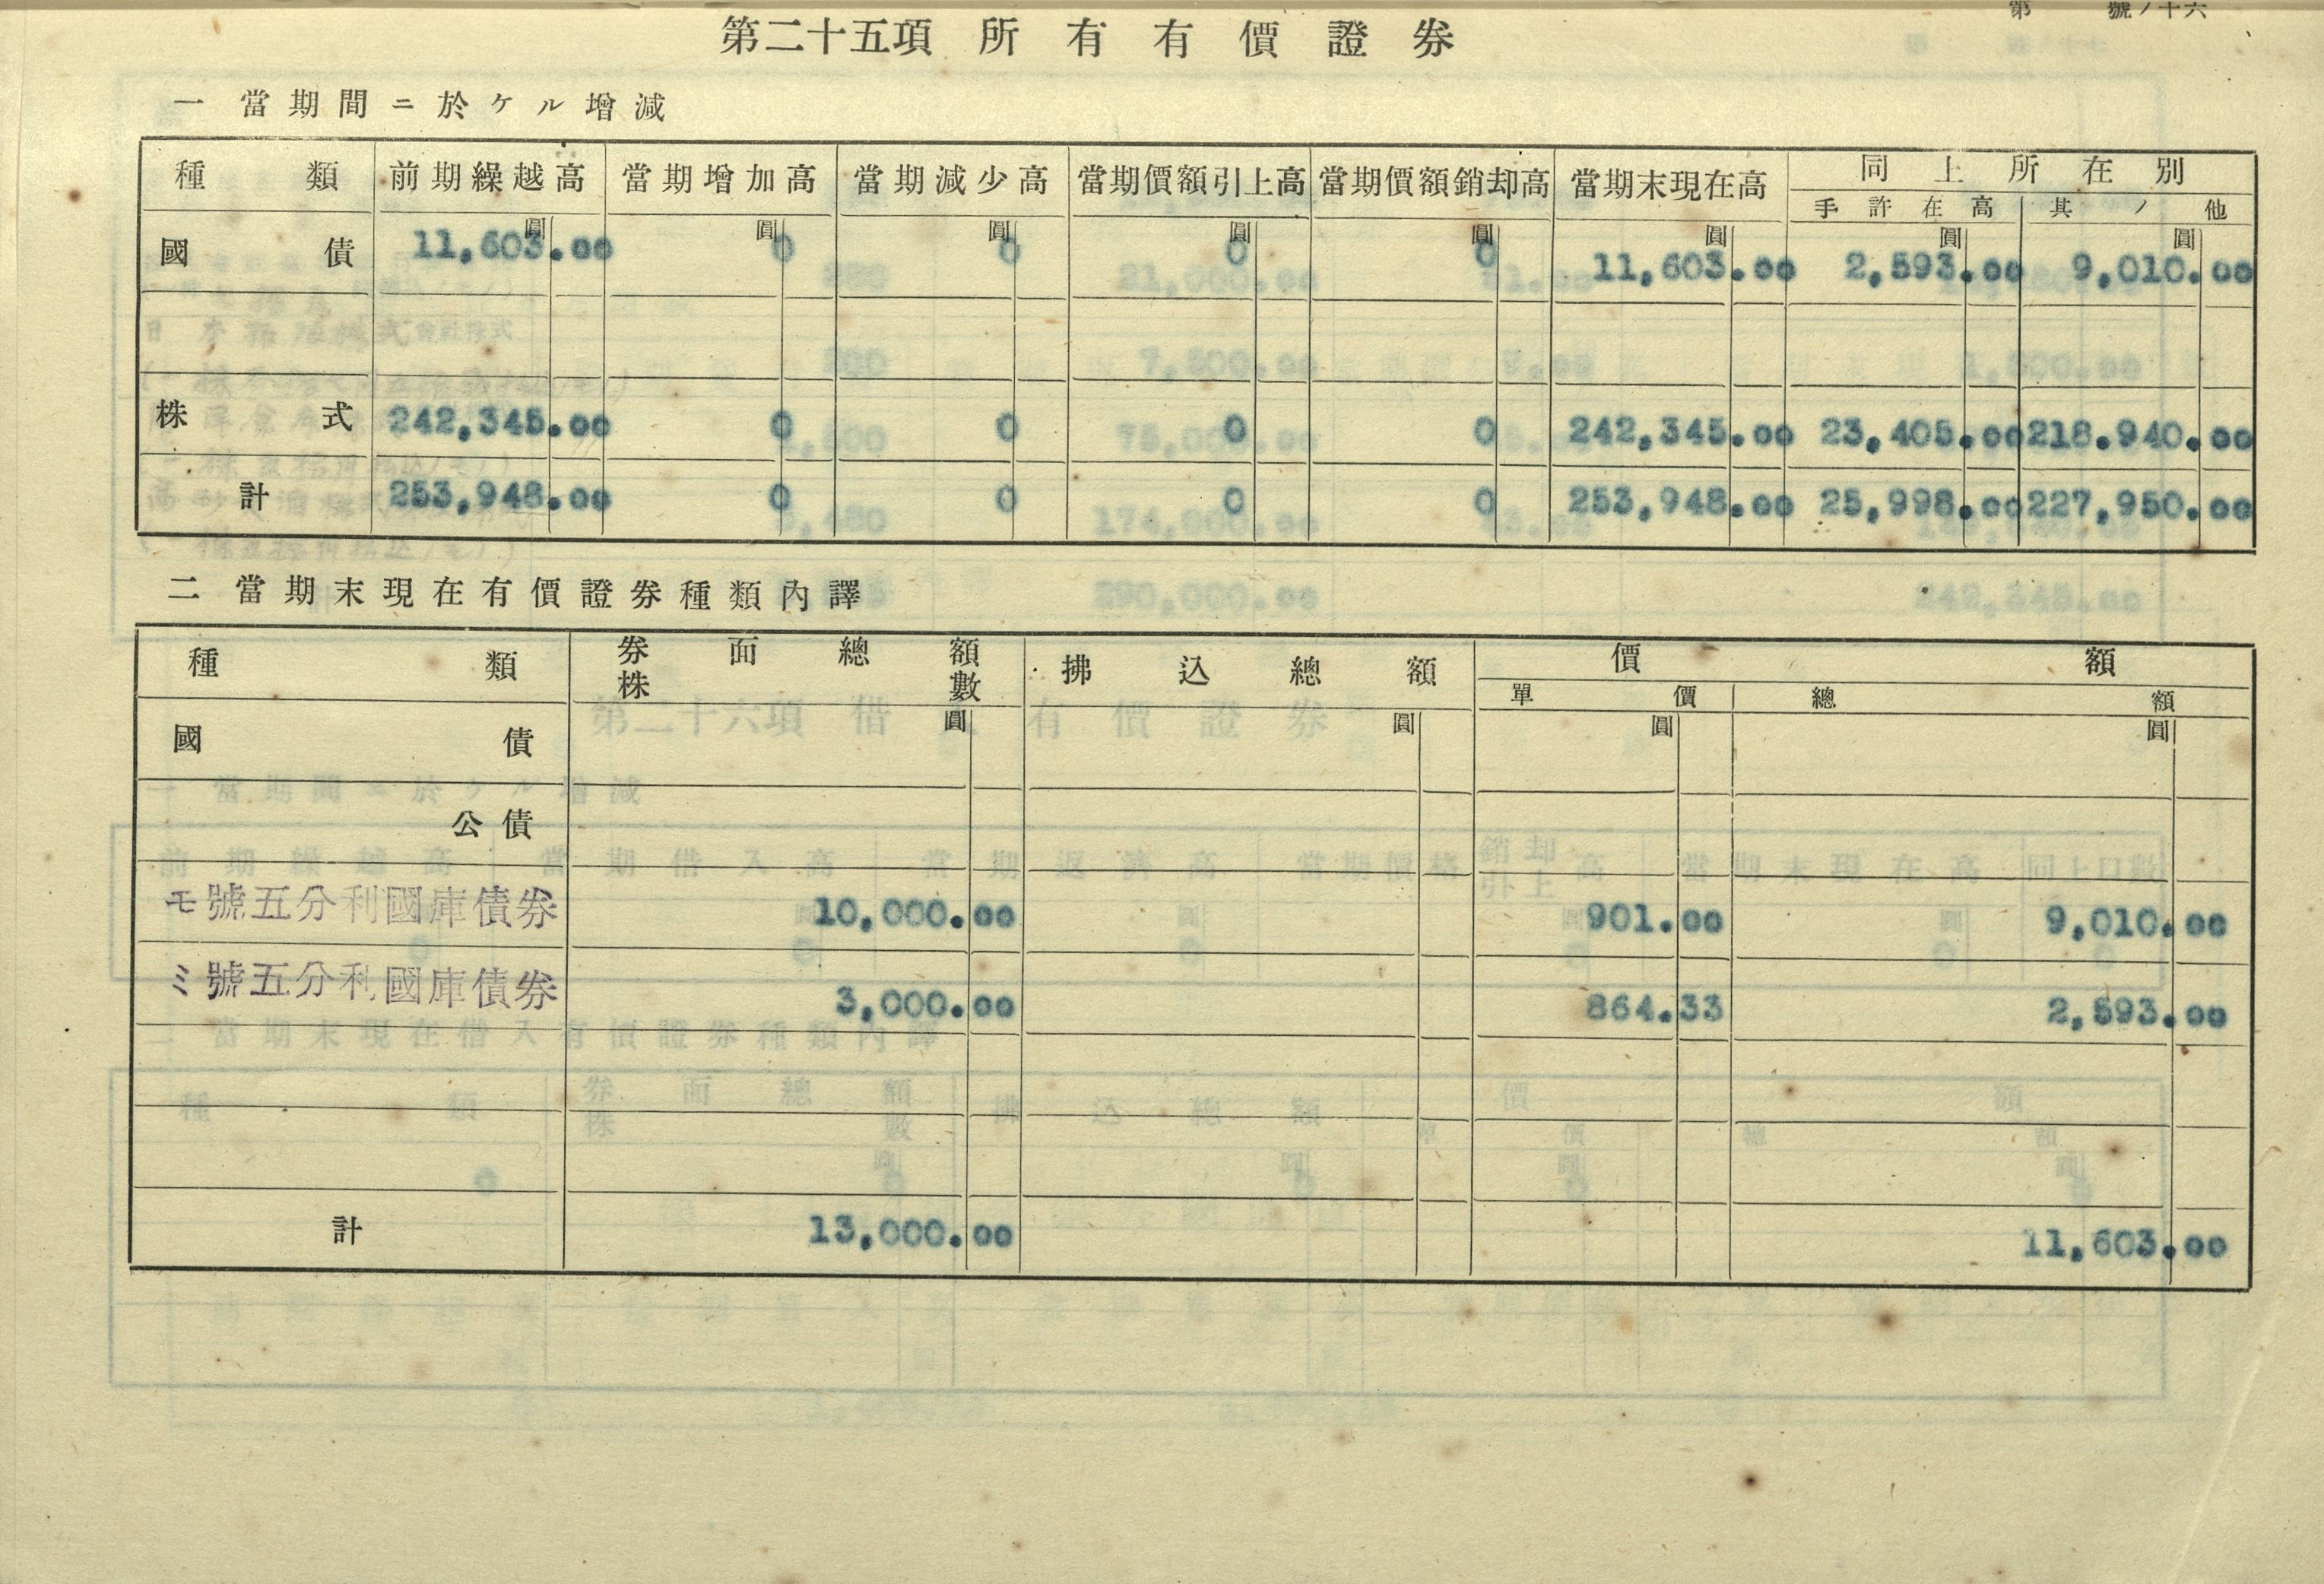 第 號ノ十六
第二十五項 所有有價證券
一 當期間ニ於ケル增減
種類 前期繰越高 當期增加高 當期減少高 當期價額引上高 當期價額銷却高 當期末現在高 同上所在別
手許在高 其ノ他
圓 圓 圓 圓 圓 圓 圓 圓
國債 11,603.00 0 0 0 0 11,603.00 2,593.00 9,010.00
株式 242,345.00 0 0 0 0 242,345.00 23,405.00 218.940.00
計 253,948.00 0 0 0 0 253,948.00 25,998.00 227,950.00
二 當期末現在有價證券種類內譯
種類 券面總額 拂込總額 價額
株數 單價 總額
圓 圓 圓 圓
國債
公債
モ號五分利國庫債券 10,000.00 901.00 9,010.00
ミ號五分利國庫債券 3,000.00 864.33 2,593.00
計 13,000.00 11,603.00